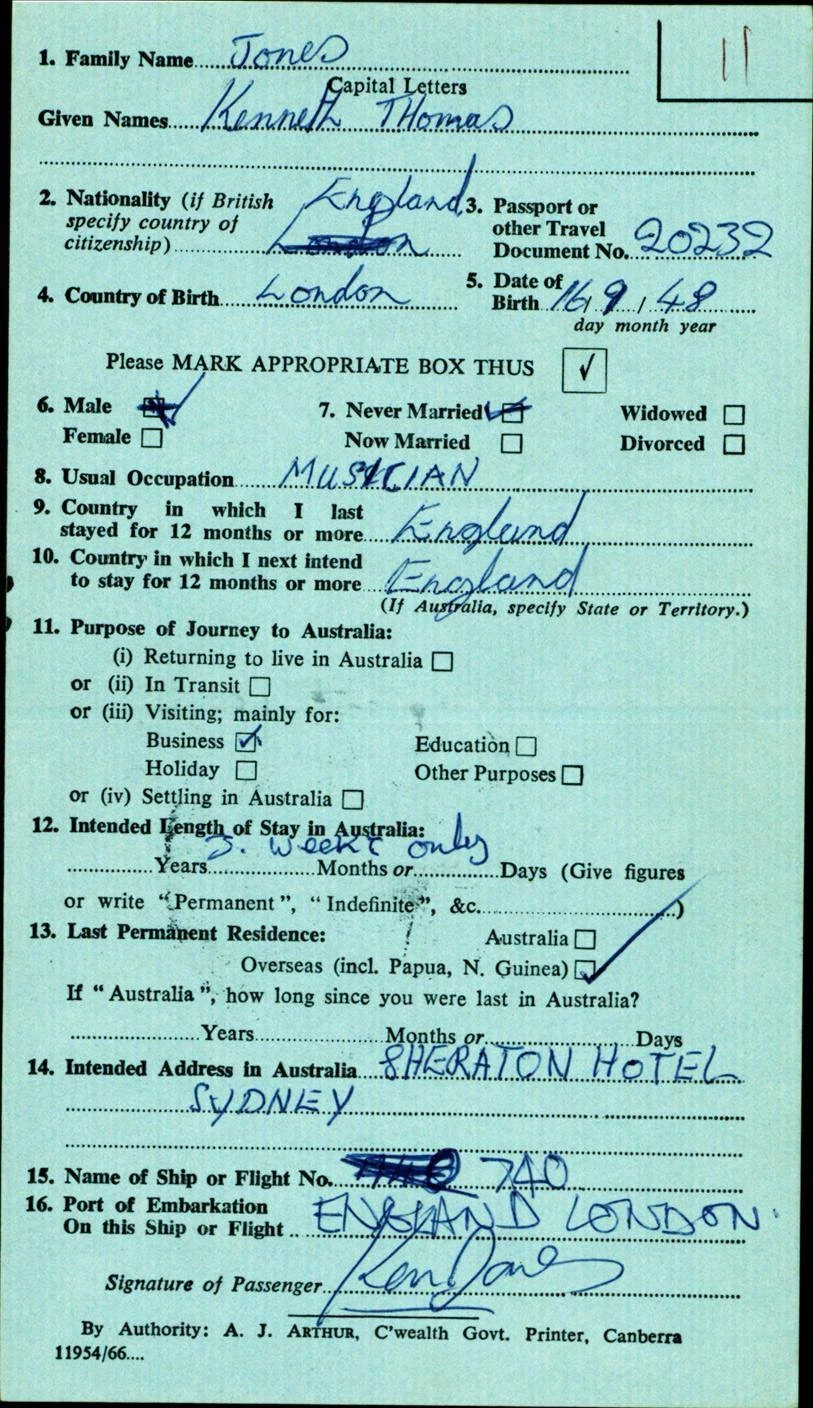 11
1. Family Name Jones
Capital Letters
Given Names Kenneth THomas
2. Nationality (if British specify country of citizenship) England London
3. Passport or other Travel Document No. 20232
4. Country of Birth London
5. Date of Birth 16 / 9 / 48
day month year
Please MARK APPROPRIATE BOX THUS ✓
6. Male 7. Never Married Widowed
Female Now Married Divorced
8. Usual Occupation MUSICIAN
9. Country in which I last
stayed for 12 months or more England
10. Country in which I next intend
to stay for 12 months or more England
(If Australia, specify State or Territory.)
11. Purpose of Journey to Australia:
(i) Returning to live in Australia
or (ii) In Transit
or (iii) Visiting; mainly for:
Business ✓ Education
Holiday Other Purposes
or (iv) Settling in Australia
12. Intended Length of Stay in Australia:
3. weeks only
Years Months or Days (Give figures
or write "Permanent", "Indefinite", &c. )
13. Last Permanent Residence: Australia
Overseas (incl. Papua, N. Guinea) ✓
If "Australia", how long since you were last in Australia?
Years Months or Days
14. Intended Address in Australia SHERATON HOTEL
SYDNEY
15. Name of Ship or Flight No. 740
16. Port of Embarkation
On this Ship or Flight ENGLAND LONDON.
Signature of Passenger Ken Jones
By Authority: A. J. ARTHUR, C'wealth Govt. Printer, Canberra
11954/66....